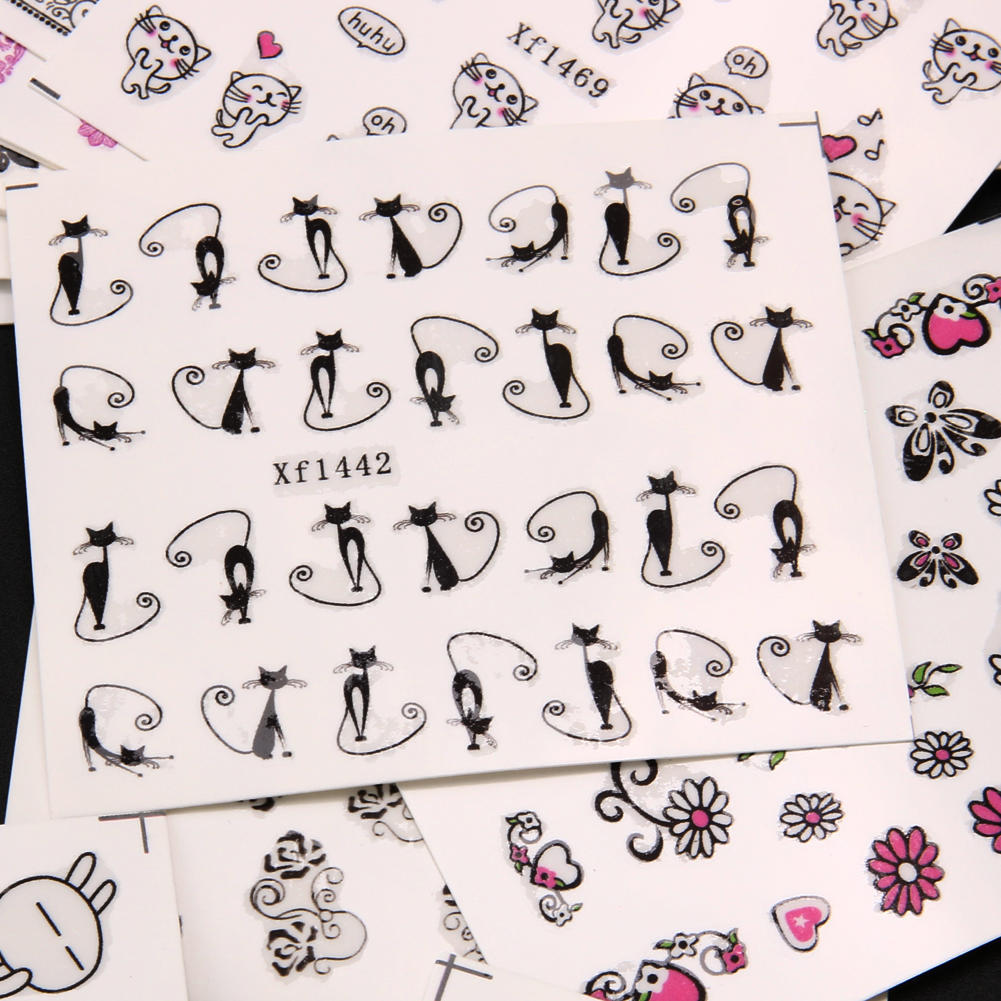 huhu
Xf1469
oh
oh
Xf1442